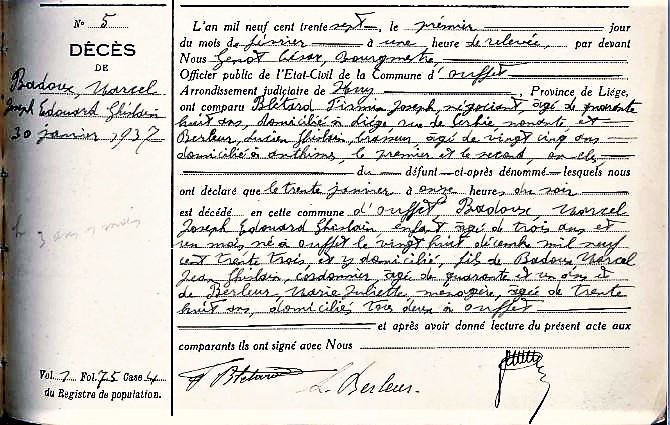 N° 5
DÉCÈS
DE
Badoux, Marcel
Joseph Edouard Ghislain
30 janvier 1937
3 ans 1 mois
Vol. 1 Fol. 75 Case 4
du Registre de population.
L'an mil neuf cent trente sept, le premier jour
du mois de février à une heure de relevée, par devant
Nous Genot César, Bourgmestre,
Officier public de l'Etat-Civil de la Commune d'Ouffet
Arrondissement judiciaire de Huy, Province de Liége,
ont comparu Blétard Firmin Joseph, négociant, âgé de quarante
huit ans, domicilié à Liége, rue de Serbie nonante et
Berleur, Lucien Ghislain, brasseur, âgé de vingt cinq ans
domicilié à Anthisnes, le premier et le second, oncles
du défunt ci-après dénommé lesquels nous
ont déclaré que le trente janvier à onze heures du soir
est décédé en cette commune d'Ouffet, Badoux, Marcel
Joseph Edouard Ghislain enfant, âgé de trois ans et
un mois né à Ouffet le vingt huit décembre mil neuf
cent trente trois, et y domicilié, fils de Badoux Marcel
Jean Ghislain, cordonnier, âgé de quarante et un ans et
de Berleur, Marie Juliette ménagère, âgée de trente
huit ans, domiciliés tous deux à Ouffet
et après avoir donné lecture du présent acte aux
comparants ils ont signé avec Nous
F Bletard
L. Berleur.